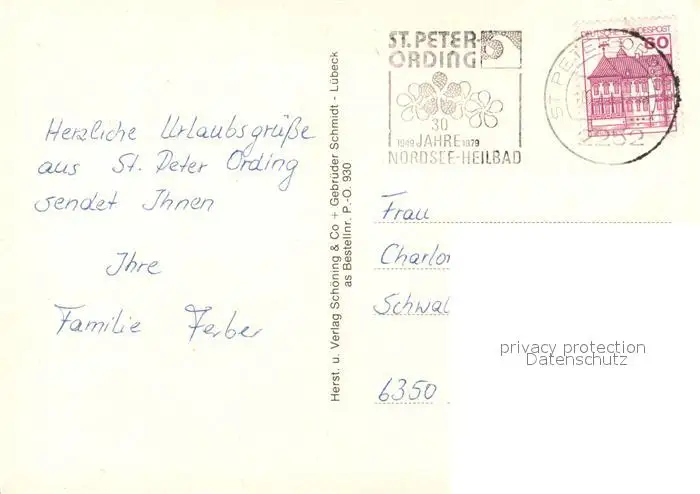 Herzliche Urlaubsgrüße
aus St. Peter Ording
sendet Ihnen
Ihre
Familie Ferber
Herst. u. Verlag Schöning & Co + Gebrüder Schmidt - Lübeck
as Bestellnr. P.-O. 930
ST. PETER-
ORDING
30
1949 JAHRE 1979
NORDSEE-HEILBAD
DEUTSCHE BUNDESPOST
60
ST. PETER-ORD
2252
Frau
Charlo
Schwal
6350
privacy protection
Datenschutz